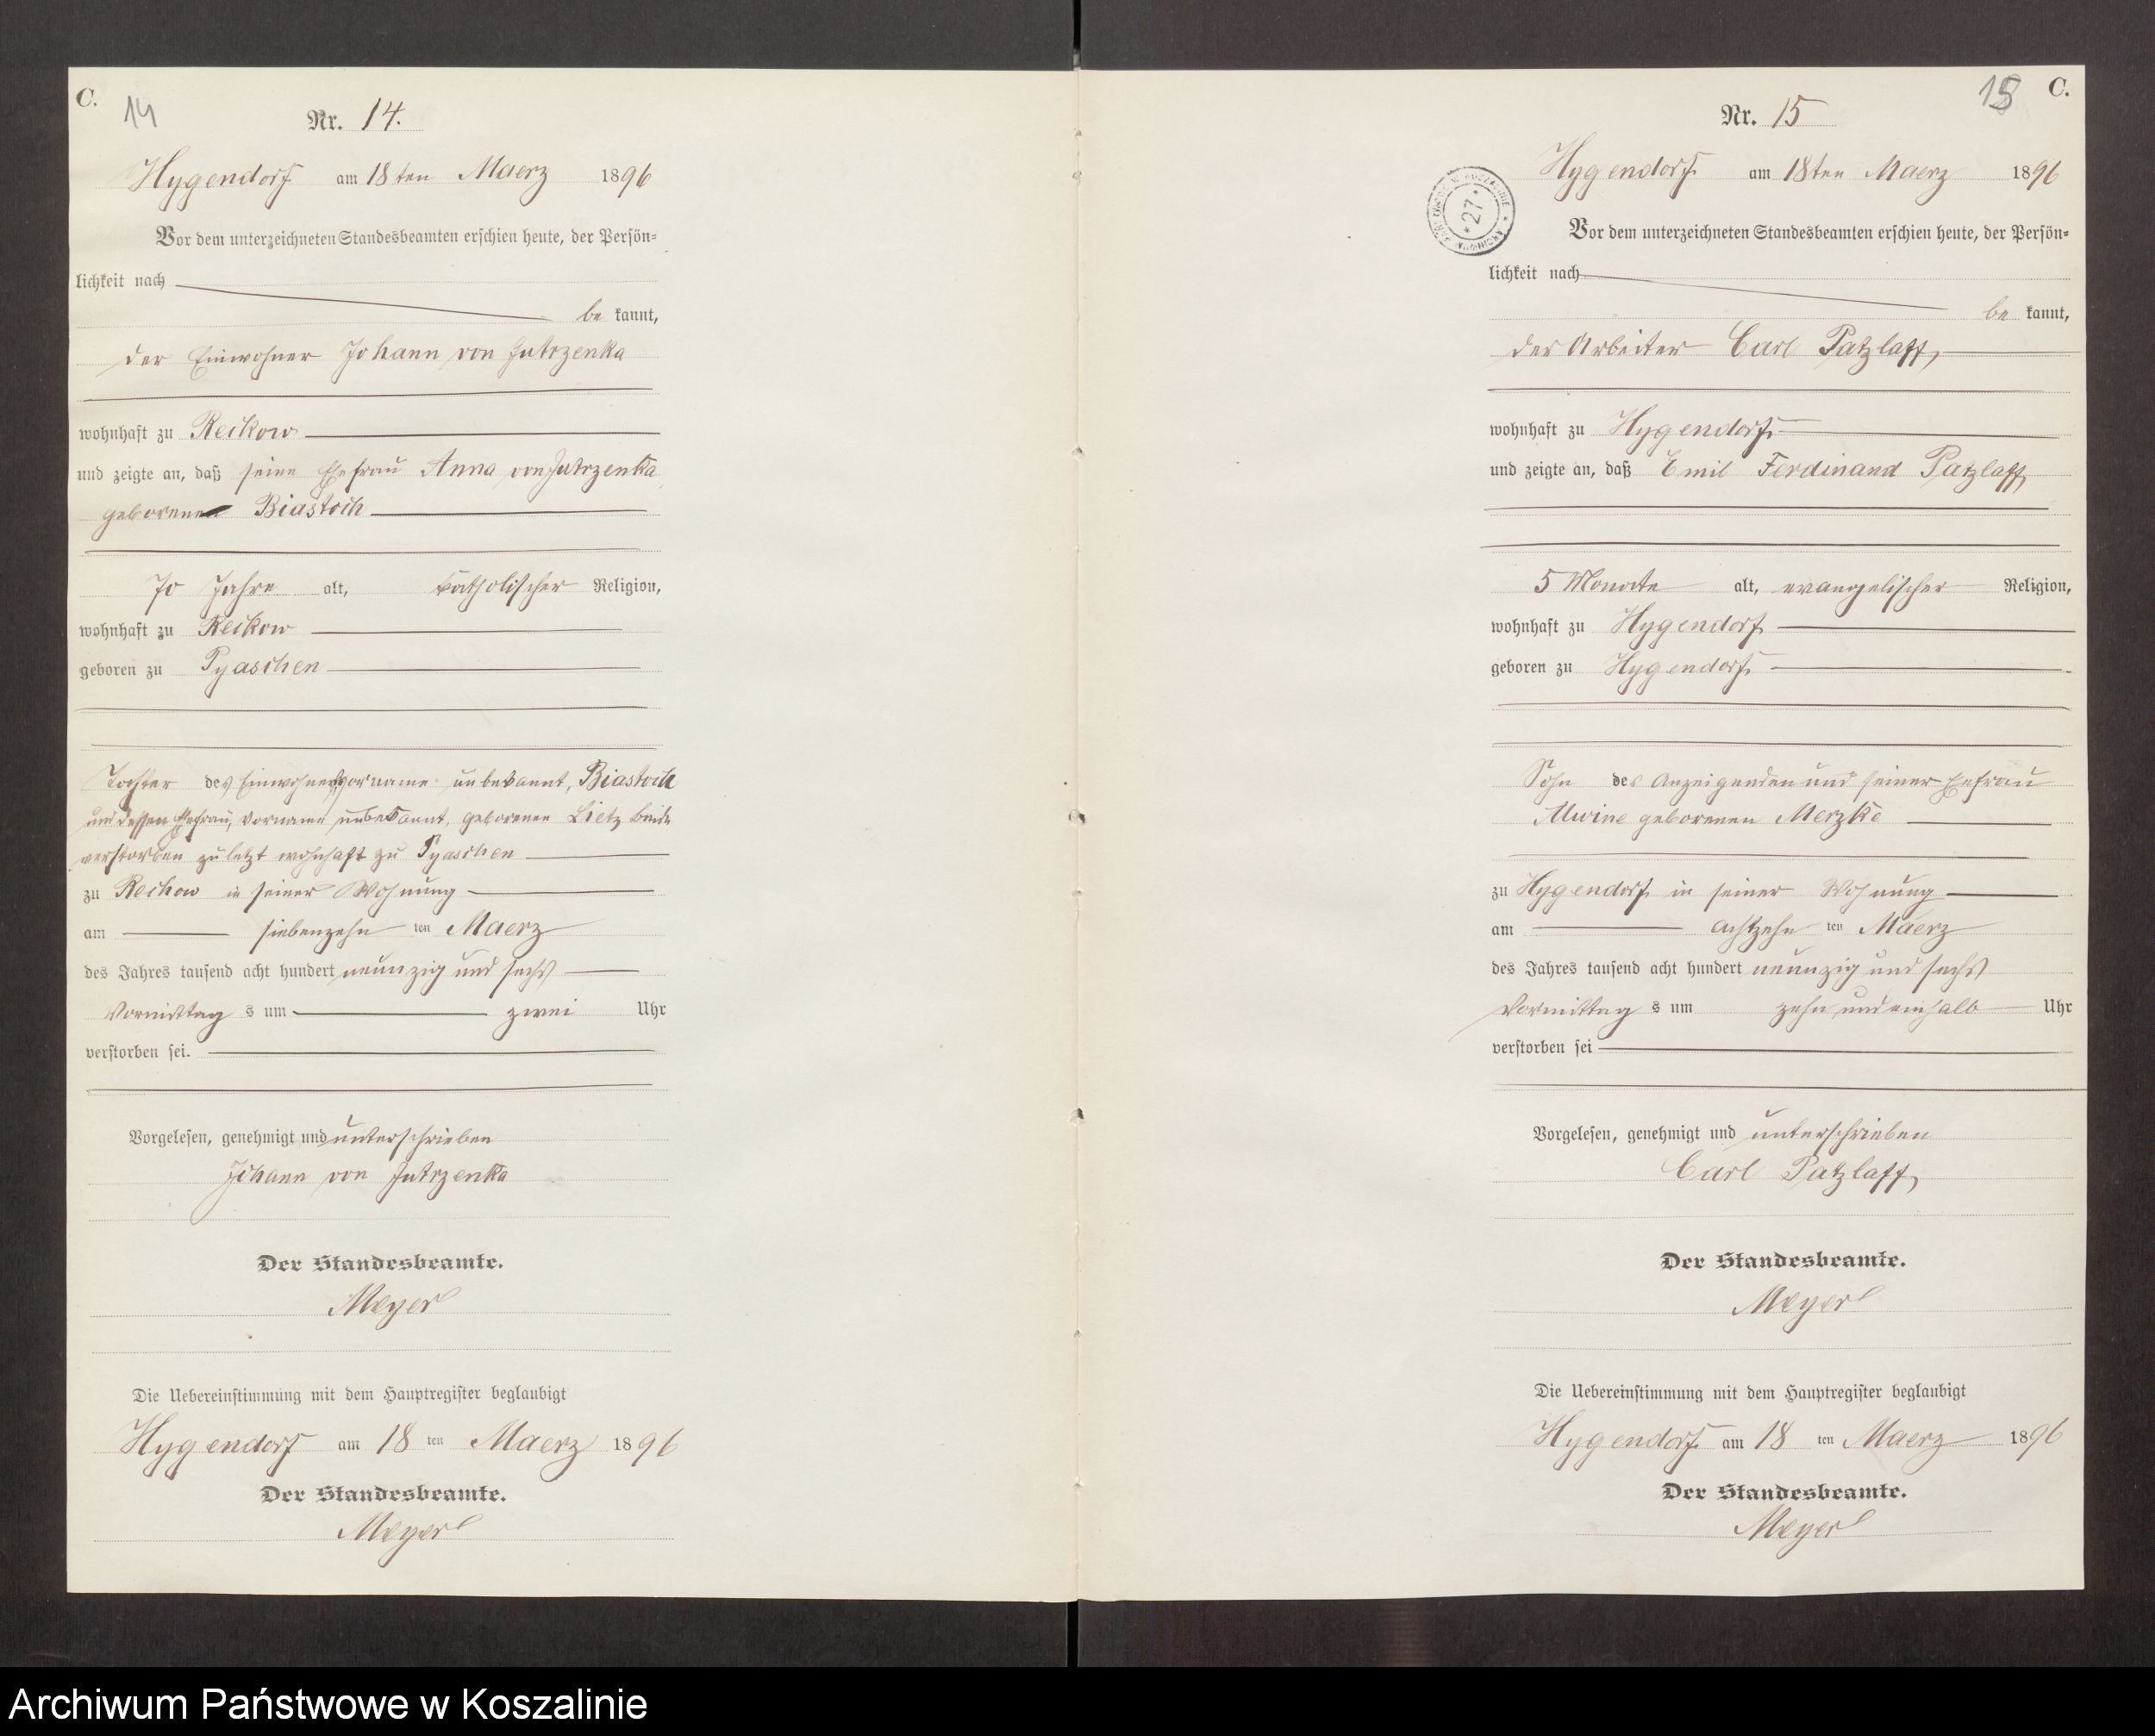 C.
14
Nr. 14.
Hygendorf am 18ten Maerz 1896
Vor dem unterzeichneten Standesbeamten erschien heute, der Persön-
lichkeit nach
be kannt,
der Einwohner Johann von Jutrzenka
wohnhaft zu Reikow
und zeigte an, daß seine Ehefrau Anna von Jutrzenka
geborenen Biastoch
70 Jahre alt, katholischer Religion,
wohnhaft zu Reikow
geboren zu Pyaschen
Tochter des Einwohners, vorname unbekannt, Biastoch
und dessen Ehefrau, Vorname unbekannt, geborenen Lietz beide
verstorben zuletzt wohnhaft zu Pyaschen
zu Reckow in seiner Wohnung
am siebenzehn ten Maerz
des Jahres tausend acht hundert neunzig und sechs
Vormittag s um zwei Uhr
verstorben sei.
Vorgelesen, genehmigt und unterschrieben
Johann von Jutrzenka
Der Standesbeamte.
Meyer
Die Uebereinstimmung mit dem Hauptregister beglaubigt
Hygendorf am 18 ten Maerz 1896
Der Standesbeamte.
Meyer
C.
15
Nr. 15
27
Hygendorf am 18ten Maerz 1896
Vor dem unterzeichneten Standesbeamten erschien heute, der Persön-
lichkeit nach
be kannt,
der Arbeiter Carl Patzlaff,
wohnhaft zu Hygendorf
und zeigte an, daß Emil Ferdinand Patzlaff
5 Monate alt, evangelischer Religion,
wohnhaft zu Hygendorf
geboren zu Hygendorf
Sohn des Anzeigenden und seiner Ehefrau
Alwine geborenen Merzke
zu Hygendorf in seiner Wohnung
am achtzehn ten Maerz
des Jahres tausend acht hundert neunzig und sechs
Vormittag s um zehn und einhalb Uhr
verstorben sei
Vorgelesen, genehmigt und unterschrieben
Carl Patzlaff
Der Standesbeamte.
Meyer
Die Uebereinstimmung mit dem Hauptregister beglaubigt
Hygendorf am 18 ten Maerz 1896
Der Standesbeamte.
Meyer
Archiwum Państwowe w Koszalinie